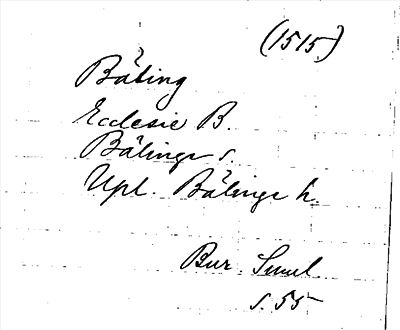 (1515)
Bäling
Ecclesie B.
Bälinge s.
Upl. Bälinge h.
Bur. Suml.
s. 55